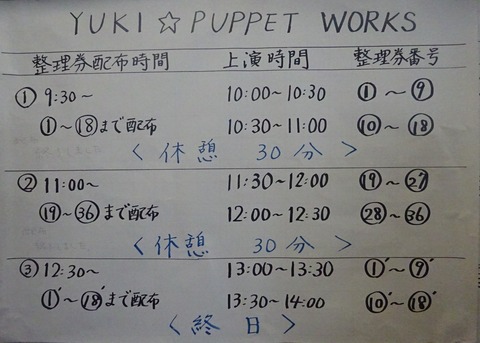 YUKI ☆ PUPPET WORKS
整理券配布時間 上演時間 整理券番号
① 9:30～ 10:00～10:30 ①～⑨
①～⑱まで配布 10:30～11:00 ⑩～⑱
＜休憩 30分＞
② 11:00～ 11:30～12:00 ⑲～㉗
⑲～㊱まで配布 12:00～12:30 ㉘～㊱
＜休憩 30分＞
③ 12:30～ 13:00～13:30 ①′～⑨′
①′～⑱′まで配布 13:30～14:00 ⑩′～⑱′
＜終日＞